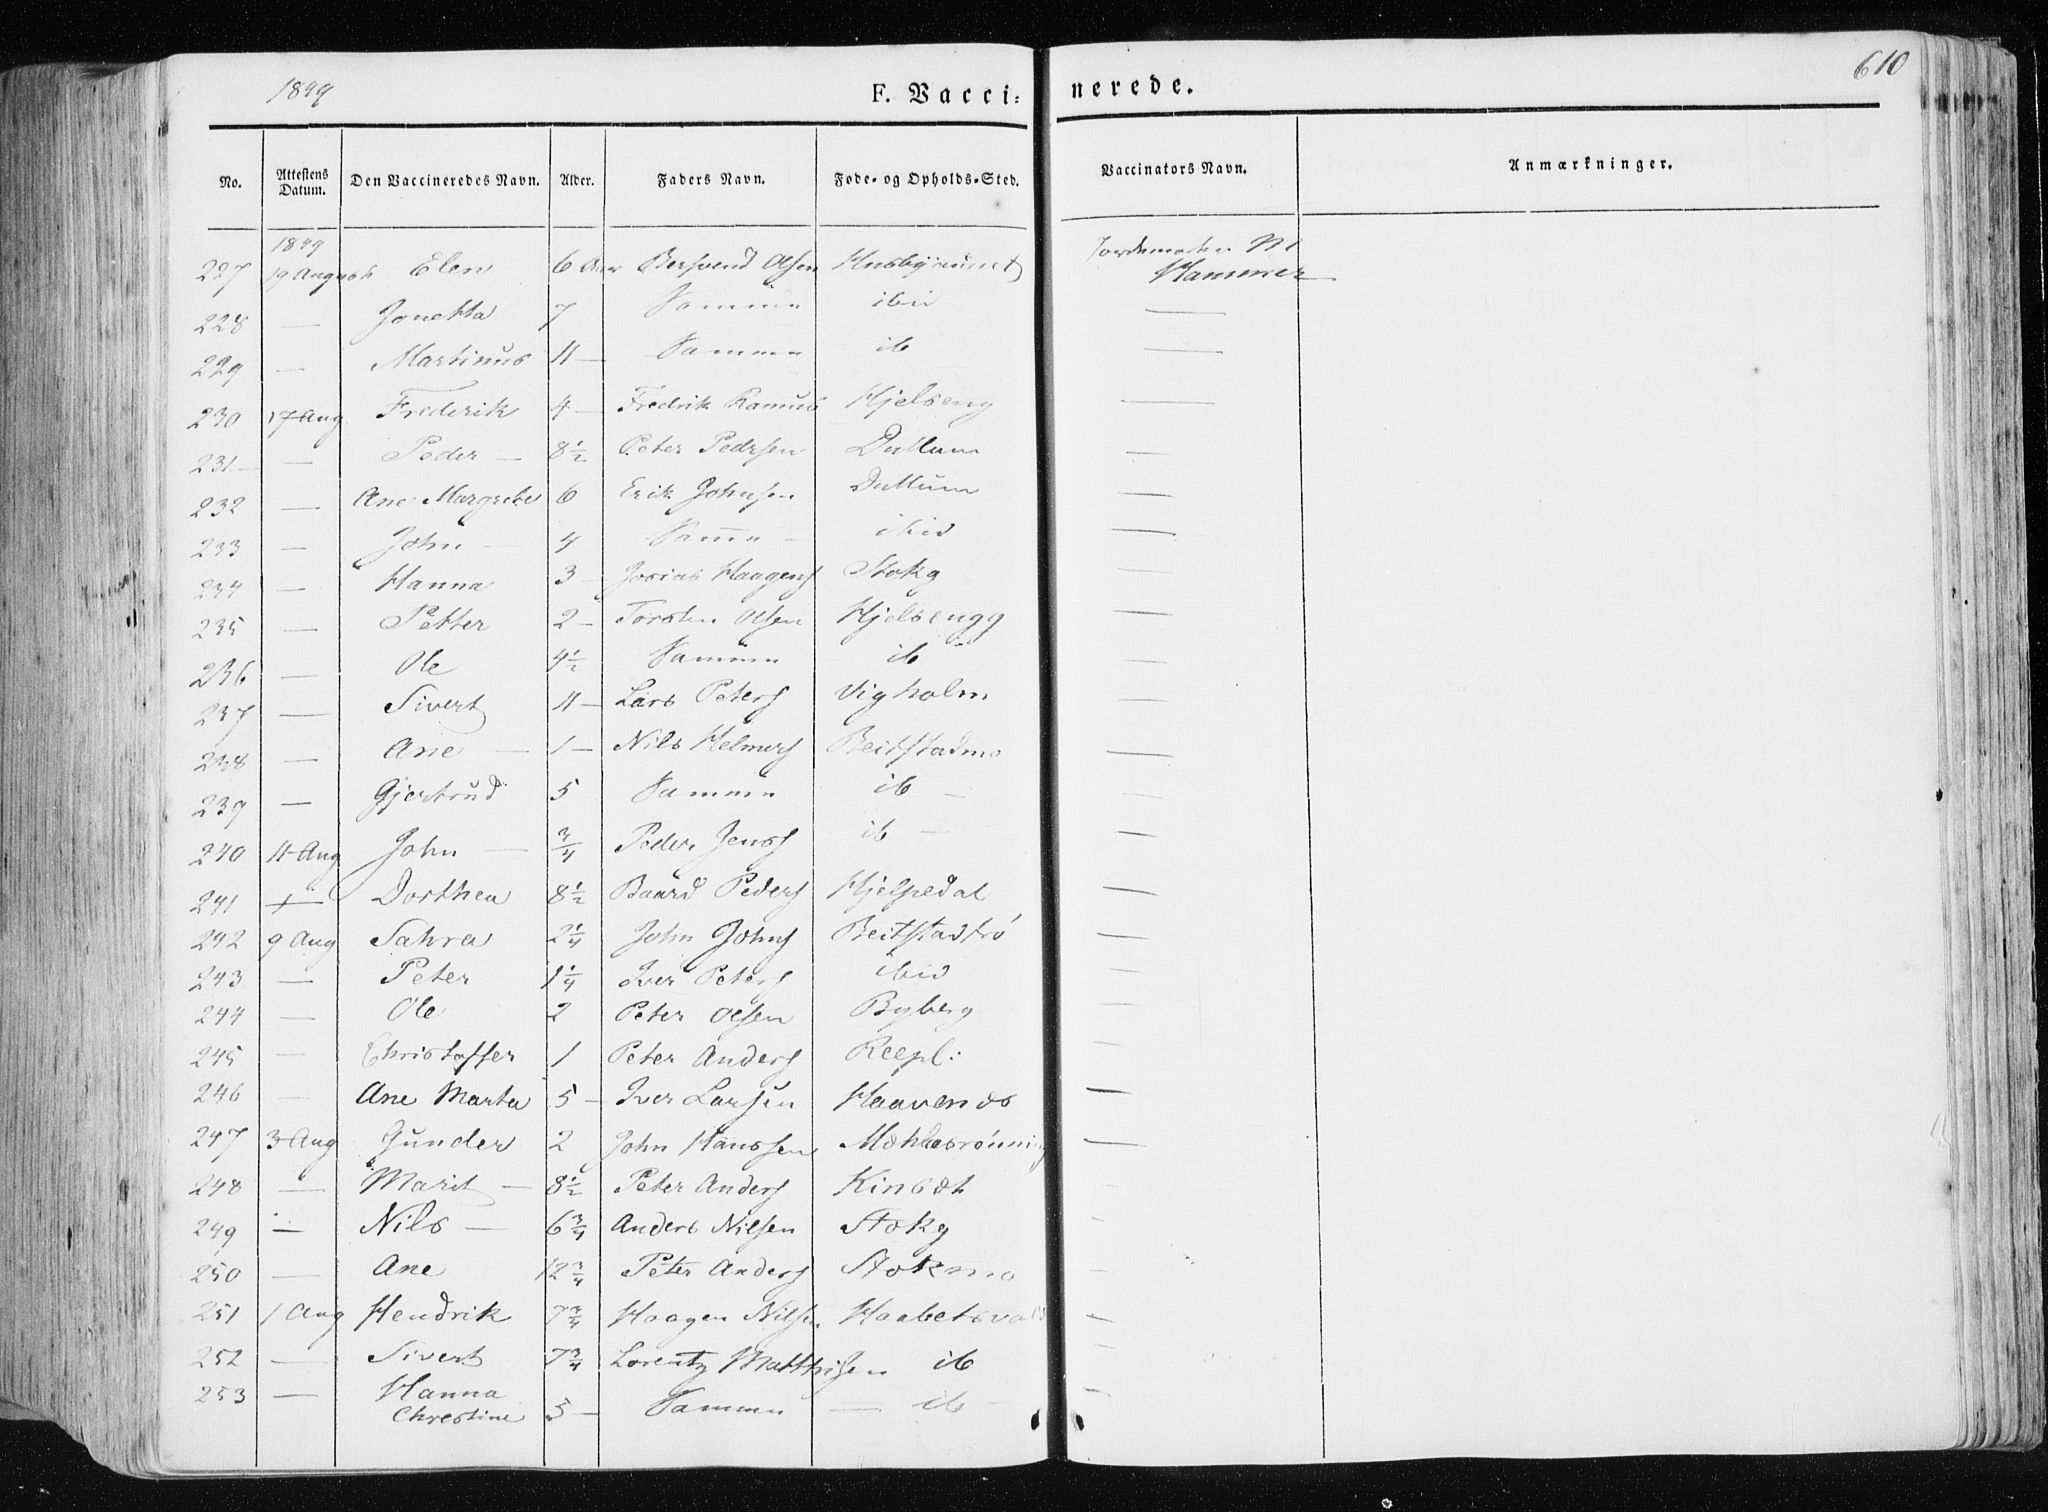 1849 F. Vacci= nerede. 610
No. Attestens Datum. Den Vaccineredes Navn. Alder. Faders Navn. Føde- og Opholds-Sted. Vaccinators Navn. Anmærkninger.
1849
227 19 August Elen 6 Aar Bersvend Olsen Husbyaunet Jordemoder M Hammer
228 — Jonetta 7 Samme ibid —
229 — Martinus 11 — Samme ib —
230 17 Aug Frederik 4 — Fredrik Ramus Hjelseng —
231 — — Peder — 8½ Peter Pedrsen Dullum —
232 — Ane Margrete 6 Erik Johnsen Dullum —
233 — John — 4 Samme — ibid —
234 — Hanna 3 — Josias Haagens Stokg —
235 — Petter 2 — Torsten Olsen Hjelsengg —
236 — Ole 4½ Samme ib —
237 — Sivert 11 — Lars Peters Vigholm —
238 — Ane — 1 — Nils Helmers Beitstadmo —
239 — Gjertrud 5 Samme ib — —
240 11 Aug John — ¾ Peder Jenss ib — —
241 — Dorthea 8½ Baard Peders Hjelpedal —
242 9 Aug Sahra 2¼ John Johns Beitstadfrø —
243 — Peter 1¼ Iver Peters ibid —
244 — Ole 2 Peter Olsen Byberg —
245 — Christoffer 1 Peter Anders Reepl: —
246 — Ane Marta 5 — Iver Larsen Haavenæs —
247 3 Aug Gunder 2 John Hanssen Mæhlesrønning —
248 — Marit — 8½ Peter Anders Kinsæth —
249 — Nils — 6¾ Anders Nilsen Stokg —
250 — Ane 12¾ Peter Anders Stokmo —
251 1 Aug Hendrik 7¾ Haagen Nilsen Haabetsvald —
252 — Sivert 7¾ Lorentz Matthisen ib —
253 — Hanna Chrestine 5 — Samme — ib — —